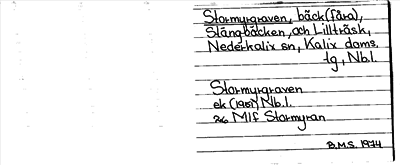 Stormyrgraven, bäck (fåra),
Stångbäcken, och Lillträsk,
Nederkalix sn, Kalix doms.
tg, Nb.l.
Stormyrgraven
ek (1951) Nb.l.
Mlf Stormyran
B.M.S. 1974